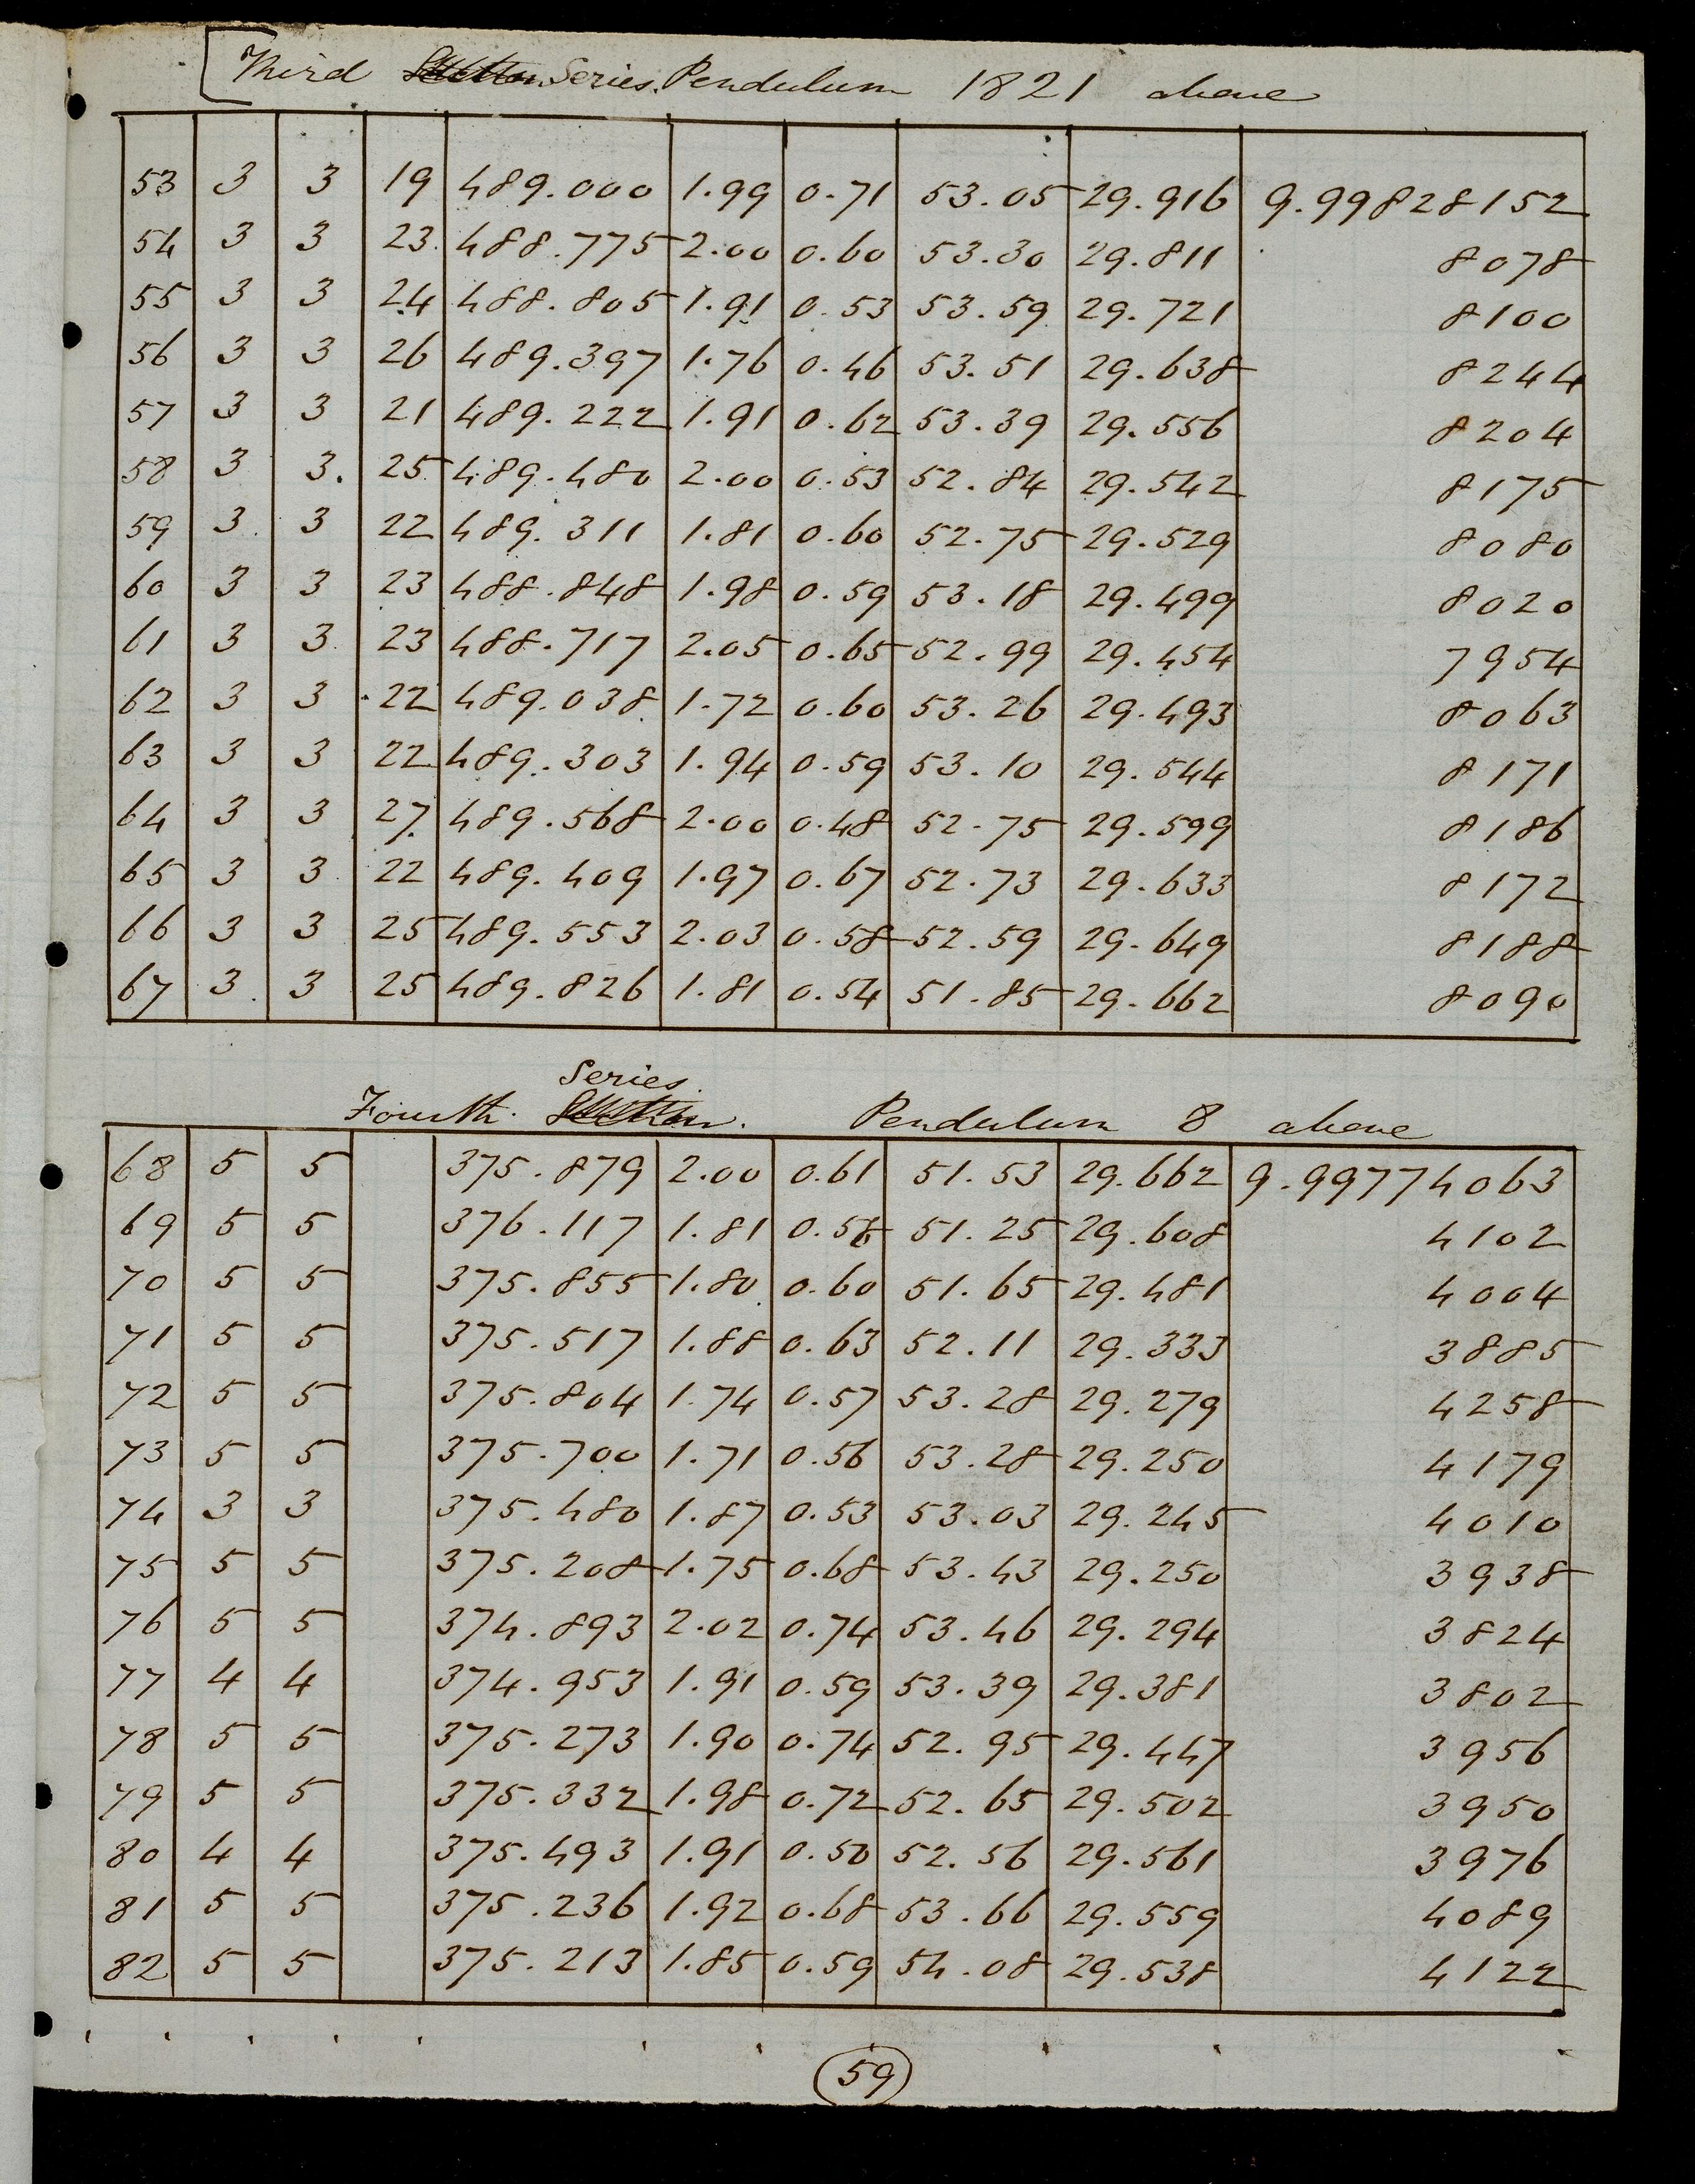 [Third Series. Pendulum 1821 above
53 3 3 19 489.000 1.99 0.71 53.05 29.916 9.99828152
54 3 3 23 488.775 2.00 0.60 53.30 29.811 8078
55 3 3 24 488.805 1.91 0.53 53.59 29.721 8100
56 3 3 26 489.397 1.76 0.46 53.51 29.638 8244
57 3 3 21 489.222 1.91 0.62 53.39 29.556 8204
58 3 3. 25 489.480 2.00 0.53 52.84 29.542 8175
59 3 3 22 489.311 1.81 0.60 52.75 29.529 8080
60 3 3 23 488.848 1.98 0.59 53.18 29.499 8020
61 3 3 23 488.717 2.05 0.65 52.99 29.454 7954
62 3 3 22 489.038 1.72 0.60 53.26 29.493 8063
63 3 3 22 489.303 1.94 0.59 53.10 29.544 8171
64 3 3 27 489.568 2.00 0.48 52.75 29.599 8186
65 3 3 22 489.409 1.97 0.67 52.73 29.633 8172
66 3 3 25 489.553 2.03 0.58 52.59 29.649 8188
67 3 3 25 489.826 1.81 0.54 51.85 29.662 8090
Series
Fourth. Pendulum 8 above
68 5 5 375.879 2.00 0.61 51.53 29.662 9.99774063
69 5 5 376.117 1.81 51.25 29.608 4102
70 5 5 375.855 1.80 0.60 51.65 29.481 4004
71 5 5 375.517 1.88 0.63 52.11 29.333 3885
72 5 5 375.804 1.74 0.57 53.28 29.279 4258
73 5 5 375.700 1.71 0.56 53.28 29.250 4179
74 3 3 375.480 1.87 0.53 53.03 29.245 4010
75 5 5 375.208 1.75 0.68 53.43 29.250 3938
76 5 5 374.893 2.02 0.74 53.46 29.294 3824
77 4 4 374.953 1.91 0.59 53.39 29.381 3802
78 5 5 375.273 1.90 0.74 52.95 29.447 3956
79 5 5 375.332 1.98 0.72 52.65 29.502 3950
80 4 4 375.493 1.91 0.50 52.56 29.561 3976
81 5 5 375.236 1.92 0.68 53.66 29.559 4089
82 5 5 375.213 1.85 0.59 54.08 29.538 4122
59